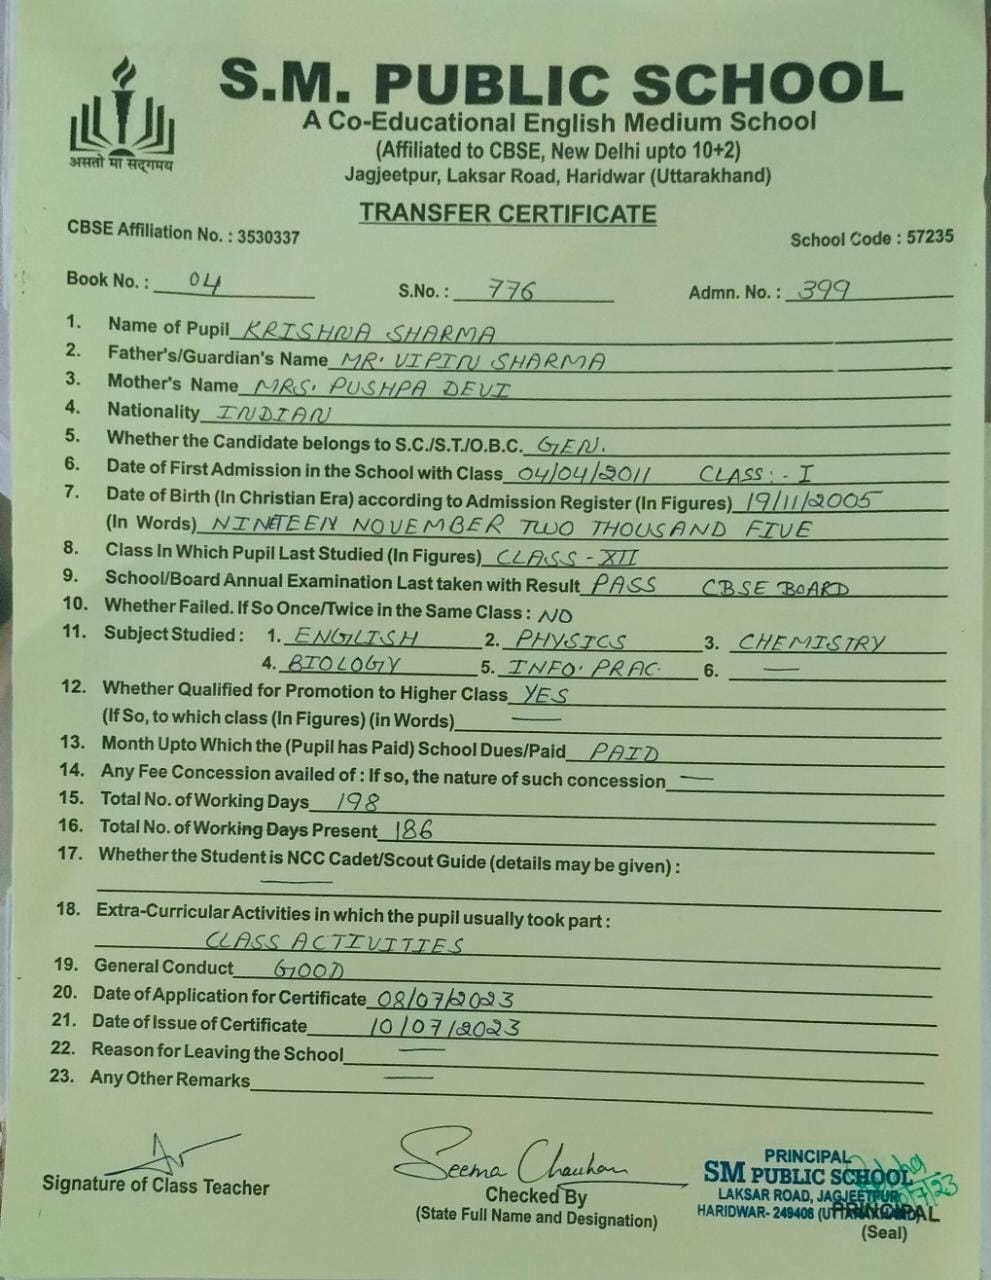 S.M. PUBLIC SCHOOL
A Co-Educational English Medium School
(Affiliated to CBSE, New Delhi upto 10+2)
असतो मा सद्गमय
Jagjeetpur, Laksar Road, Haridwar (Uttarakhand)
TRANSFER CERTIFICATE
CBSE Affiliation No. : 3530337 School Code : 57235
Book No. : 04 S.No. : 776 Admn. No. : 399
1. Name of Pupil KRISHNA SHARMA
2. Father's/Guardian's Name MR. VIPIN SHARMA
3. Mother's Name MRS. PUSHPA DEVI
4. Nationality INDIAN
5. Whether the Candidate belongs to S.C./S.T./O.B.C. GEN.
6. Date of First Admission in the School with Class 04/04/2011 CLASS:- I
7. Date of Birth (In Christian Era) according to Admission Register (In Figures) 19/11/2005
(In Words) NINETEEN NOVEMBER TWO THOUSAND FIVE
8. Class In Which Pupil Last Studied (In Figures) CLASS - XII
9. School/Board Annual Examination Last taken with Result PASS CBSE BOARD
10. Whether Failed. If So Once/Twice in the Same Class : NO
11. Subject Studied : 1. ENGLISH 2. PHYSICS 3. CHEMISTRY
4. BIOLOGY 5. INFO. PRAC. 6. —
12. Whether Qualified for Promotion to Higher Class YES
(If So, to which class (In Figures) (in Words) —
13. Month Upto Which the (Pupil has Paid) School Dues/Paid PAID
14. Any Fee Concession availed of : If so, the nature of such concession —
15. Total No. of Working Days 198
16. Total No. of Working Days Present 186
17. Whether the Student is NCC Cadet/Scout Guide (details may be given) :
—
18. Extra-Curricular Activities in which the pupil usually took part :
CLASS ACTIVITIES
19. General Conduct GOOD
20. Date of Application for Certificate 08/07/2023
21. Date of Issue of Certificate 10/07/2023
22. Reason for Leaving the School —
23. Any Other Remarks —
Seema Chauhan
PRINCIPAL
SM PUBLIC SCHOOL
LAKSAR ROAD, JAGJEETPUR
HARIDWAR- 249408 (UTTARAKHAND)
Signature of Class Teacher Checked By PRINCIPAL
(State Full Name and Designation) (Seal)